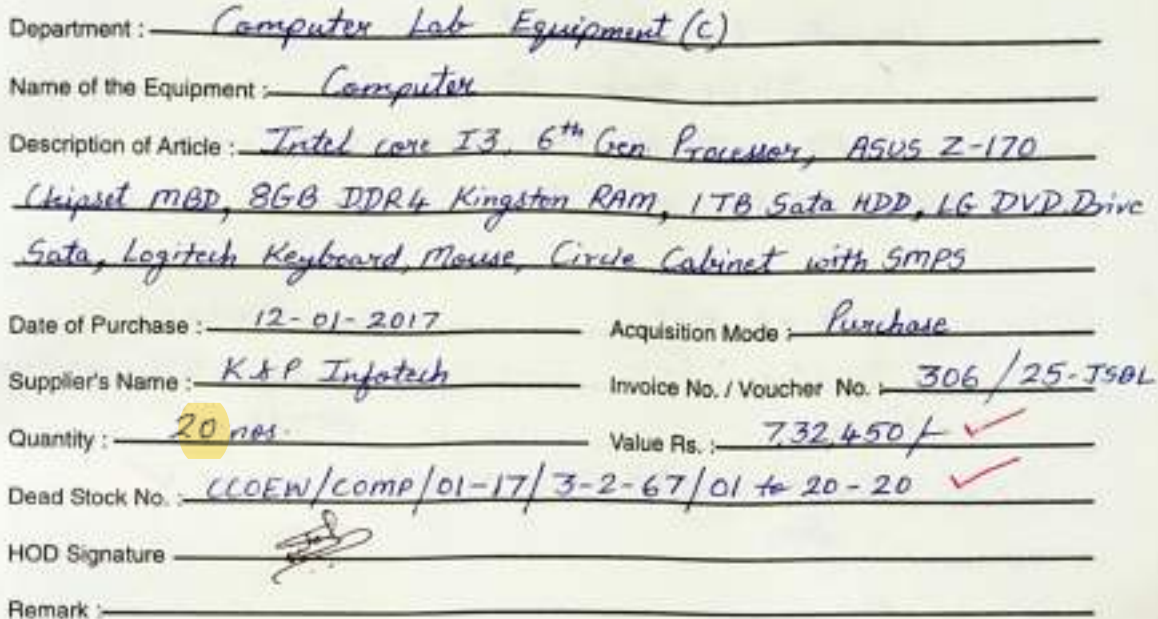 Department : Computer Lab Equipment (C)
Name of the Equipment : Computer
Description of Article : Intel core I3, 6th Gen Processor, ASUS Z-170
Chipset MBD, 8GB DDR4 Kingston RAM, 1TB Sata HDD, LG DVD Drive
Sata, Logitech Keyboard, Mouse, Circle Cabinet with SMPS
Date of Purchase : 12-01-2017 Acquisition Mode : Purchase
Supplier's Name : K&P Infotech Invoice No. / Voucher No. : 306 /25-JSBL
Quantity : 20 nos. Value Rs. : 7,32,450/-
Dead Stock No. : CCOEW/COMP/01-17/3-2-67/01 to 20-20
HOD Signature
Remark :